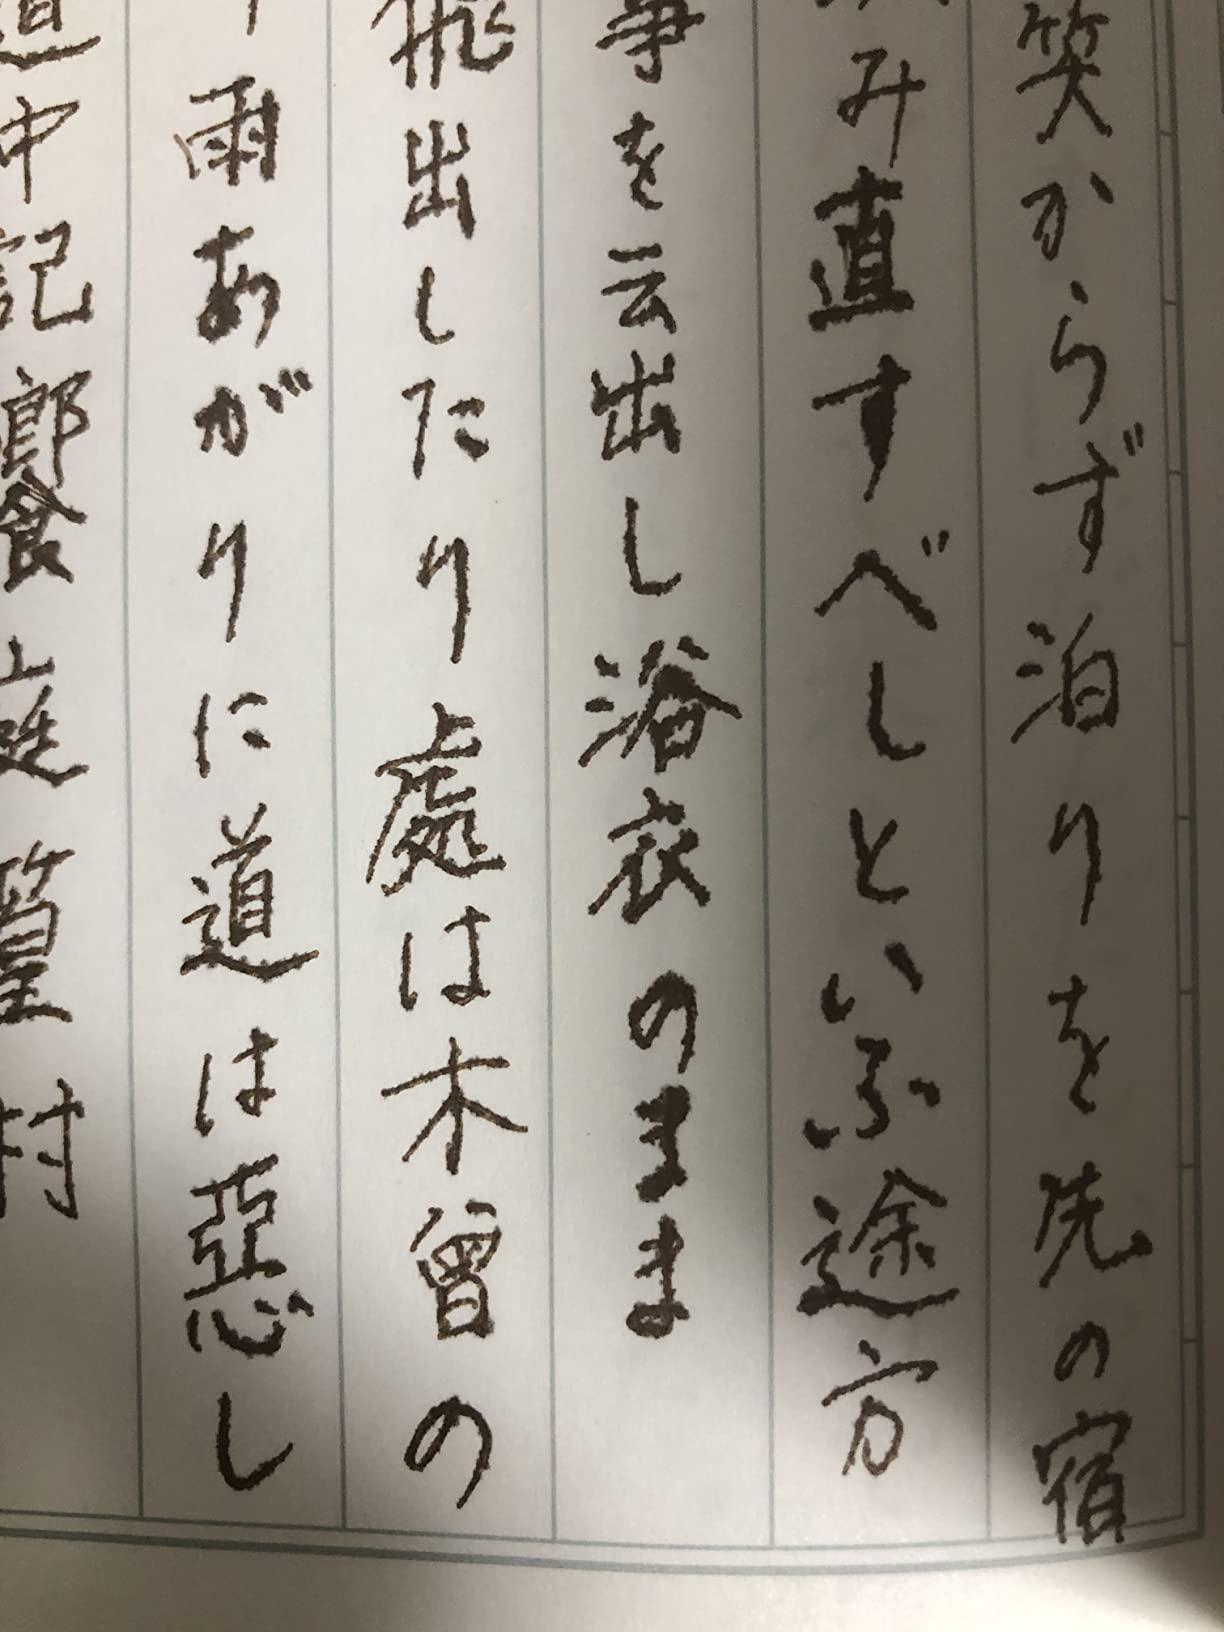 笑からず泊りを先の宿
み直すべしといふ途方
事を云出し浴衣のまま
飛出したり處は木曾の
雨あがりに道は惡し
道中記 饗庭篁村